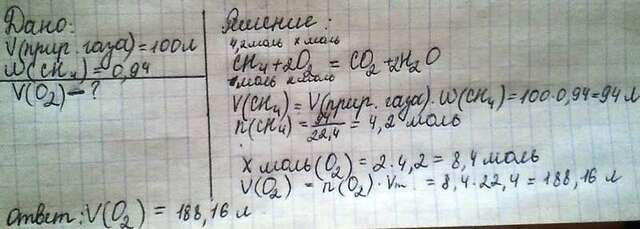 Дано:
V(прир. газа) = 100 л
W(CH4) = 0,94
V(O2) - ?
Решение:
4,2 моль x моль
CH4 + 2O2 = CO2 + 2H2O
1 моль 2 моль
V(CH4) = V(прир. газа) · W(CH4) = 100 · 0,94 = 94 л
n(CH4) = 94/22,4 = 4,2 моль
x моль (O2) = 2 · 4,2 = 8,4 моль
V(O2) = n(O2) · Vm = 8,4 · 22,4 = 188,16 л
Ответ: V(O2) = 188,16 л